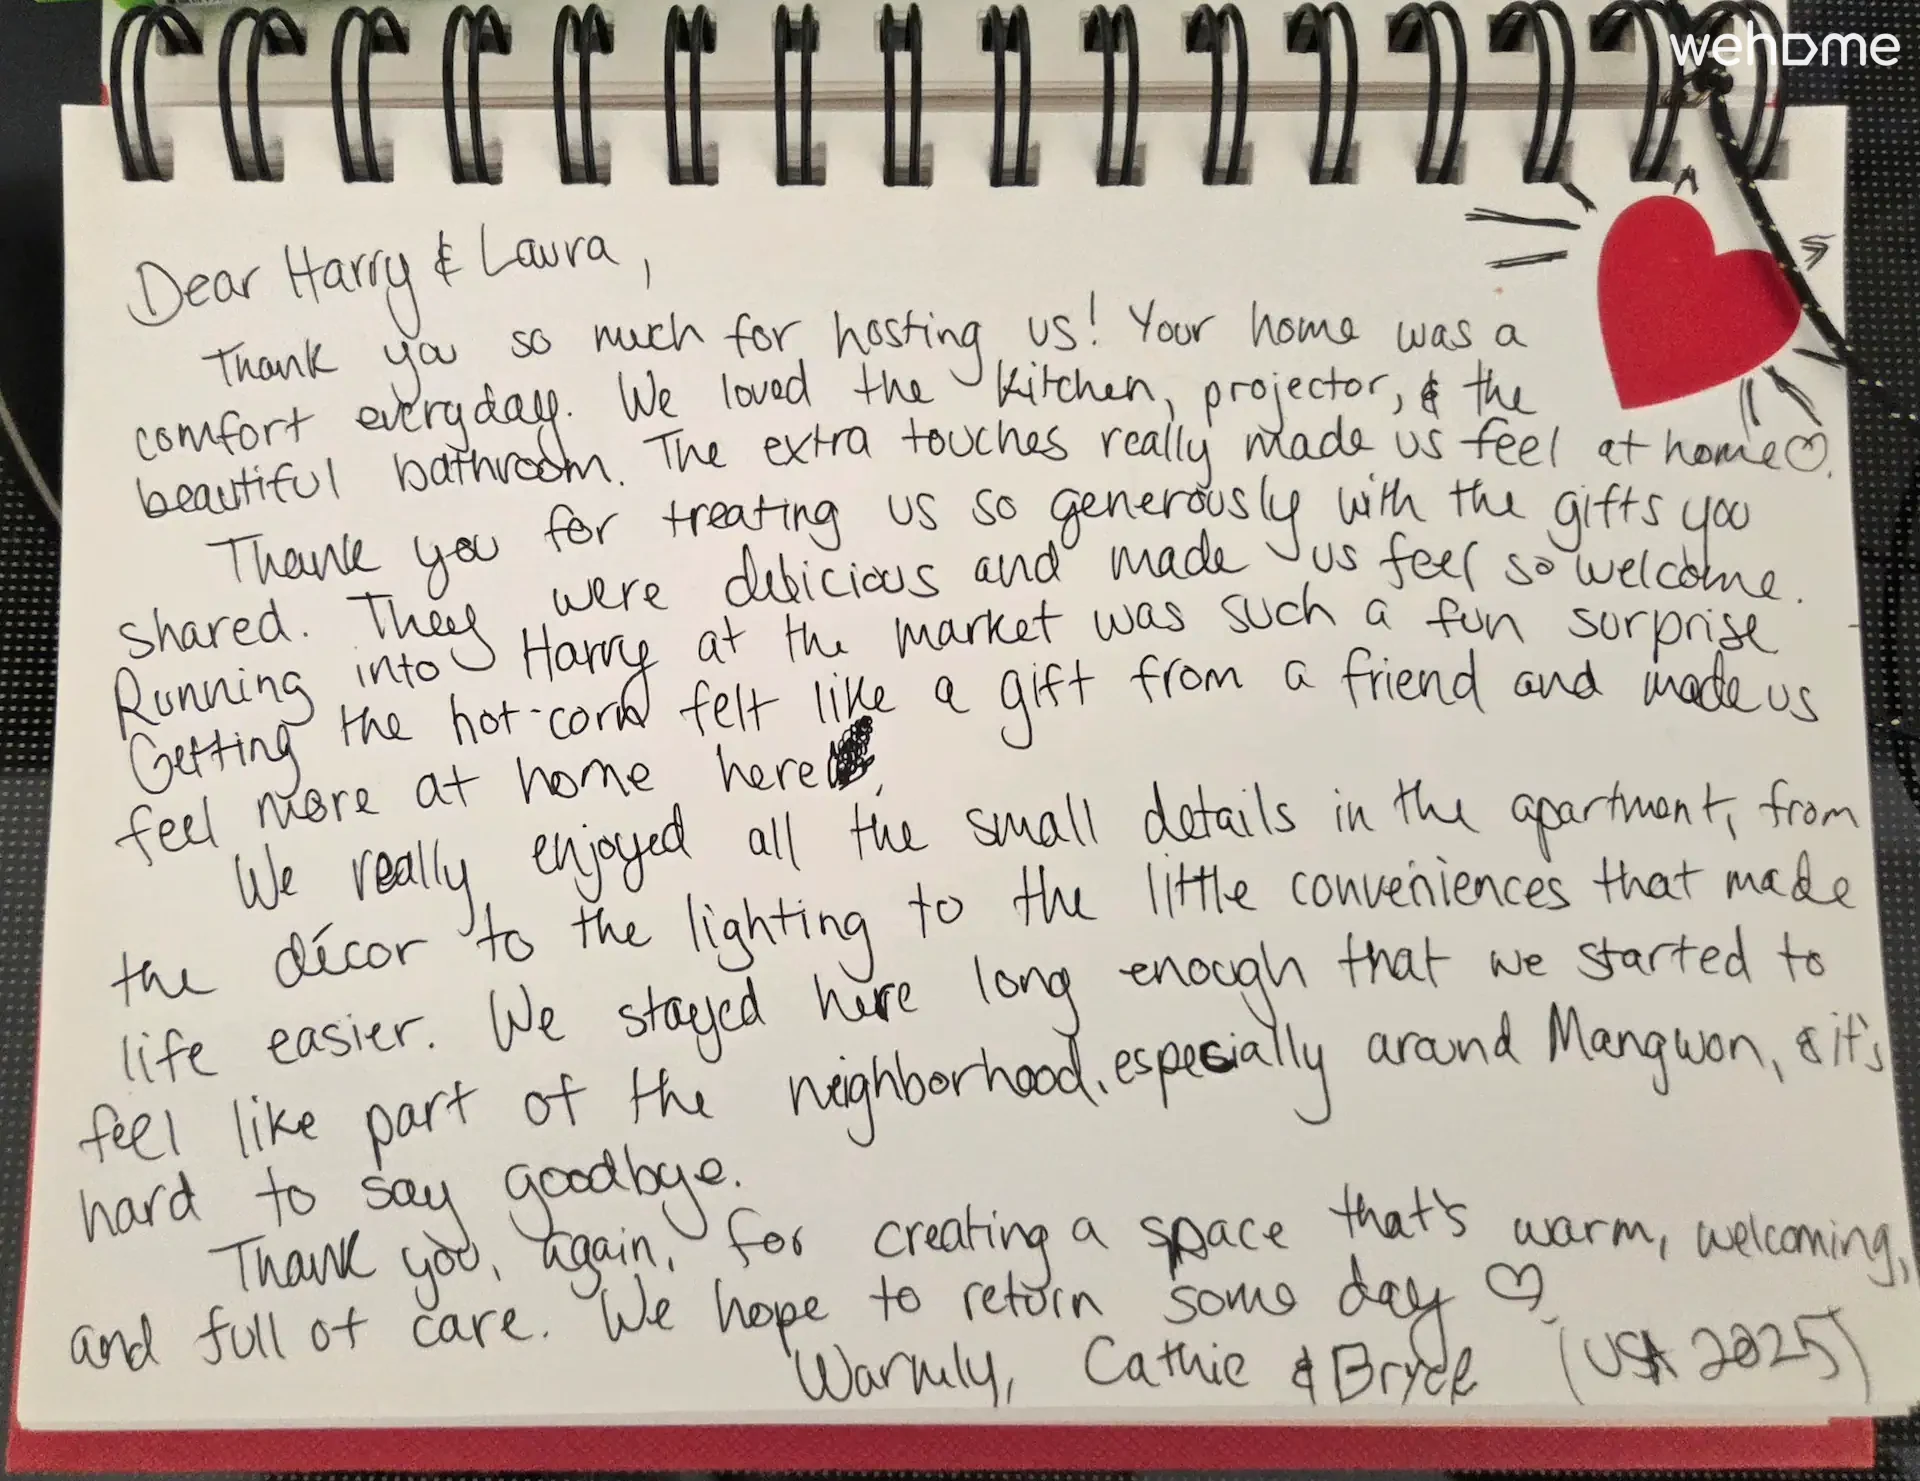 wehome
Dear Harry & Laura,
Thank you so much for hosting us! Your home was a
comfort everyday. We loved the kitchen, projector, & the
beautiful bathroom. The extra touches really made us feel at home♡.
Thank you for treating us so generously with the gifts you
shared. They were delicious and made us feel so welcome.
Running into Harry at the market was such a fun surprise
Getting the hot-corn felt like a gift from a friend and made us
feel more at home here.
We really enjoyed all the small details in the apartment, from
the décor to the lighting to the little conveniences that made
life easier. We stayed here long enough that we started to
feel like part of the neighborhood, especially around Mangwon, & it's
hard to say goodbye.
Thank you, again, for creating a space that's warm, welcoming,
and full of care. We hope to return some day ♡.
Warmly, Cathie & Bryce (USA 2025)